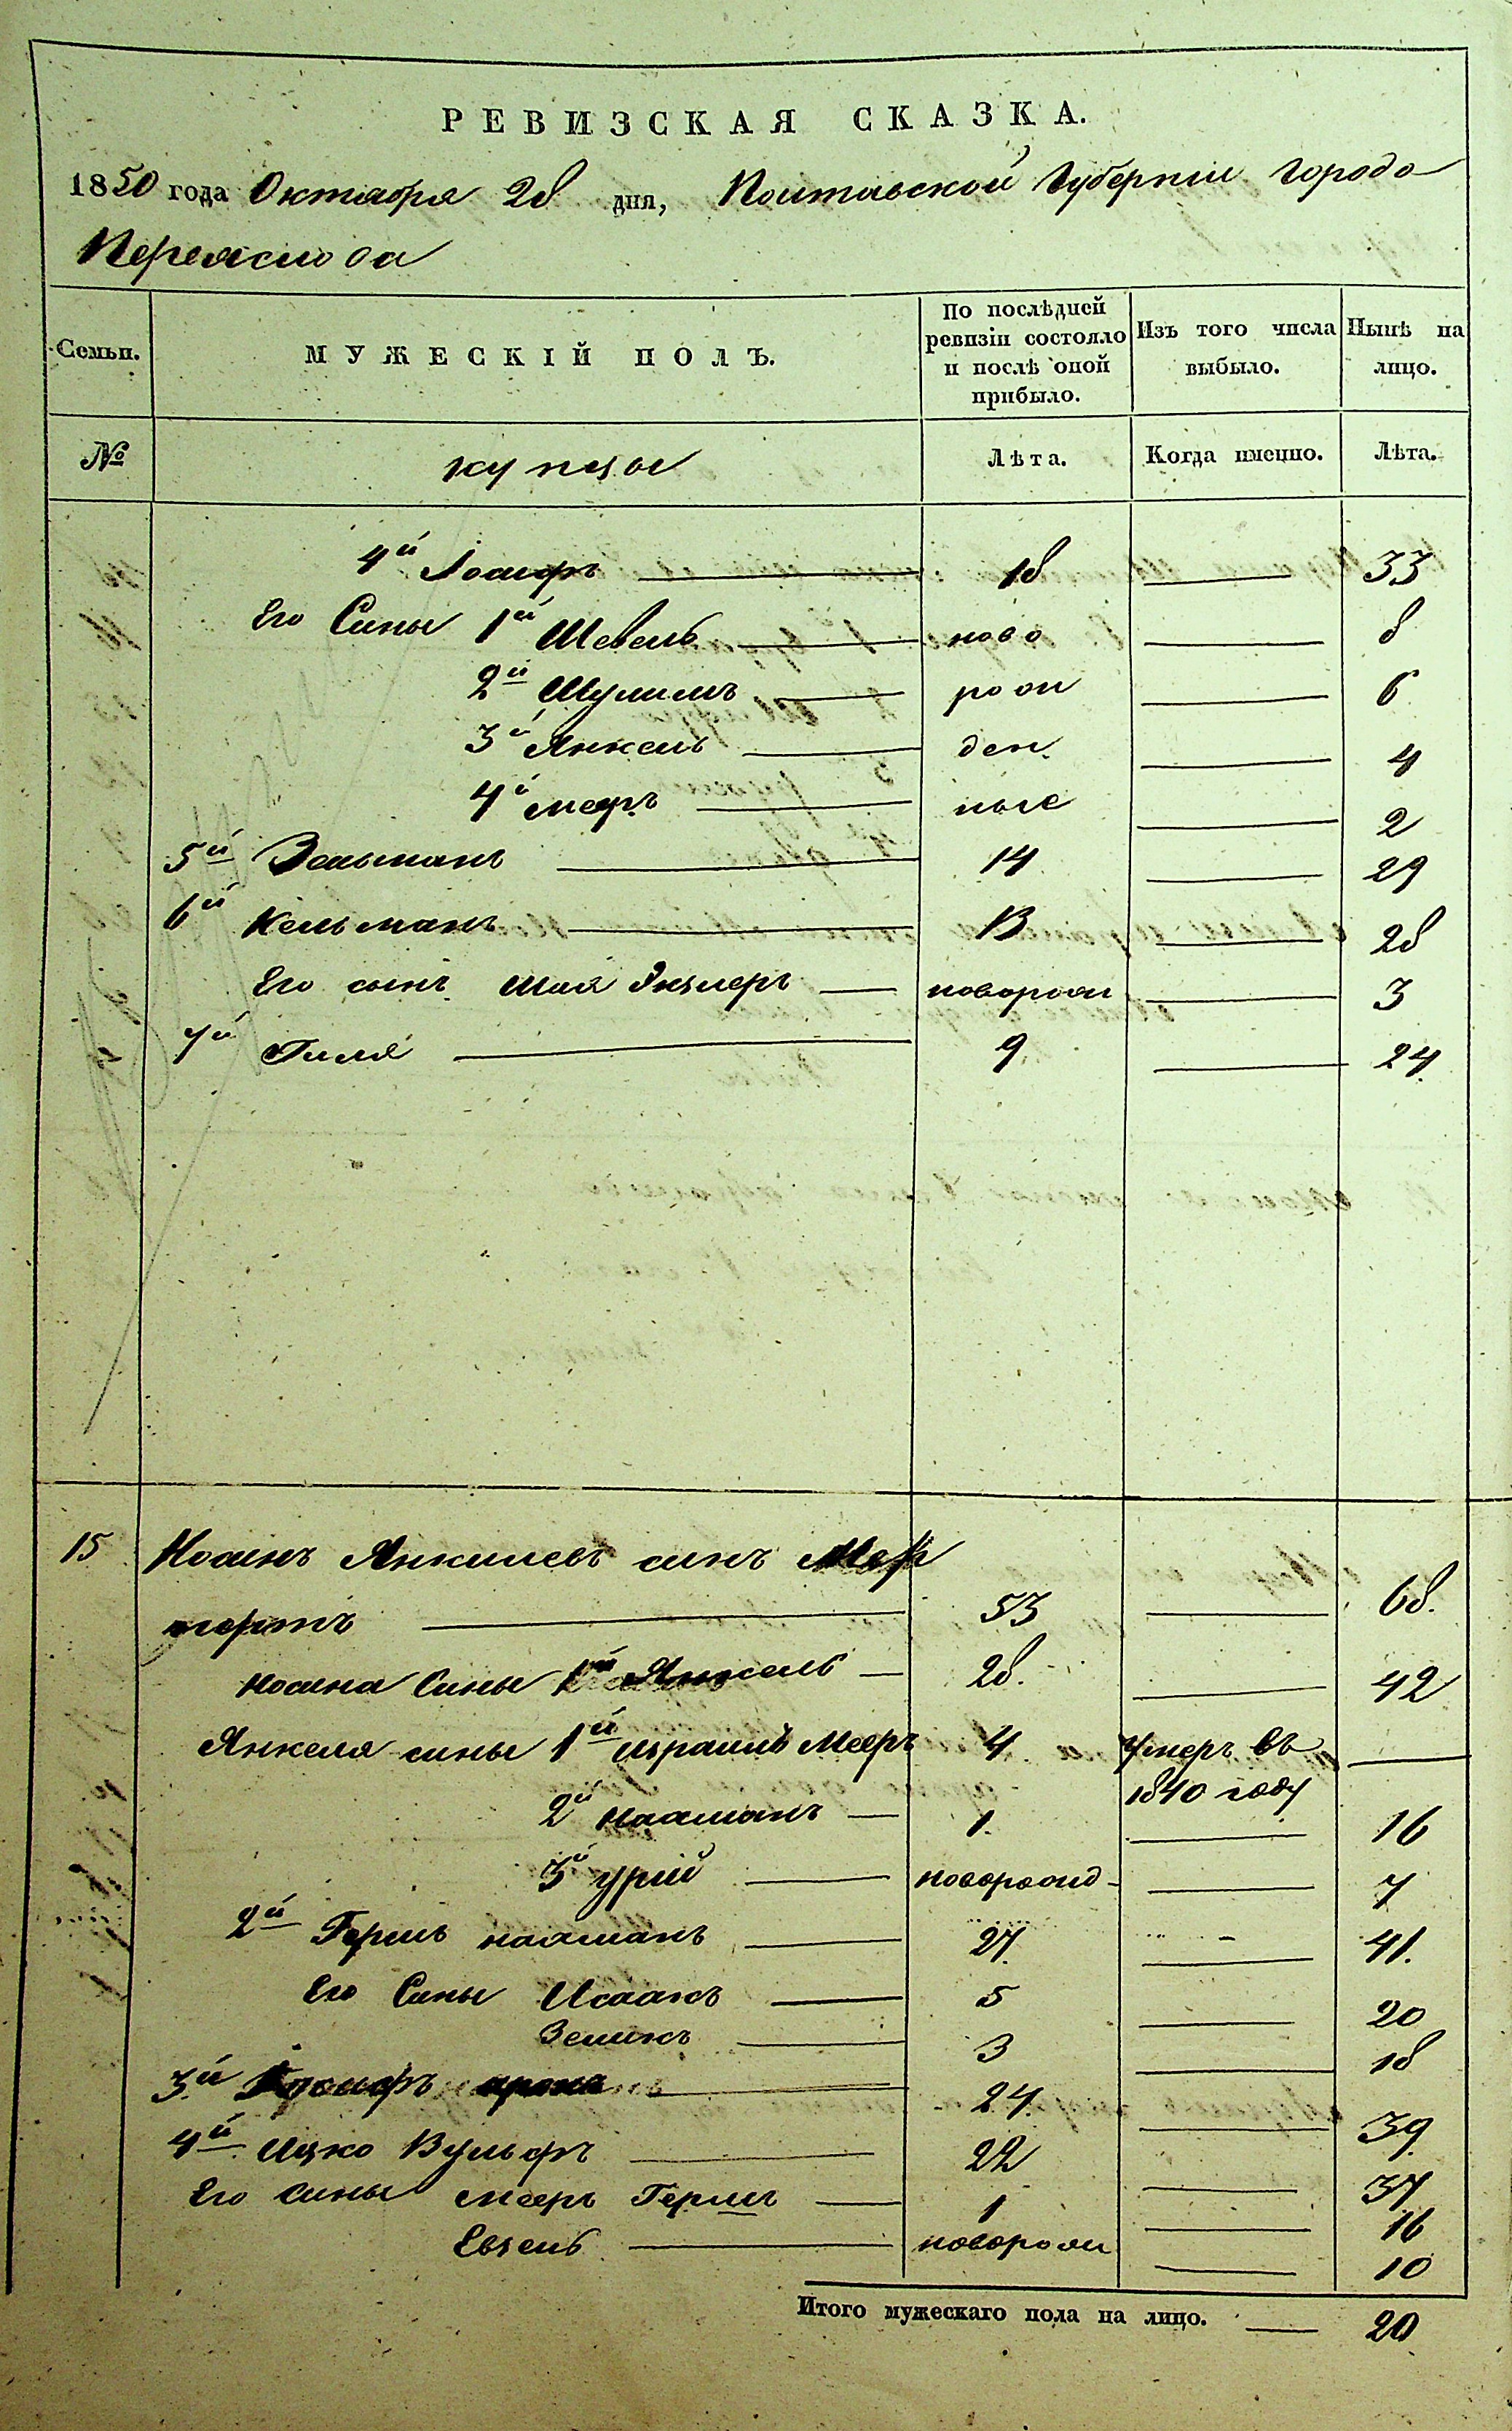 РЕВИЗСКАЯ СКАЗКА.
1850 года Октября 28 дня, Полтавской Губернии Города
Переяслова
Семьи. МУЖЕСКІЙ ПОЛЪ. По послѣдней ревизіи состояло и послѣ оной прибыло. Изъ того числа выбыло. Нынѣ на лицо.
№ купцы Лѣта. Когда именно. Лѣта.
4й Іосифъ 18 33
Его Сины 1й Шевель ново 8
2й Шулимъ рож 6
3й Янкель ден 4
4й меєръ ные 2
5й Зельманъ 14 29
6й Кельманъ 13 28
Его сынъ Шая новорож 3
7й Гиля 9 24
15 Носинъ Янкилевъ синъ Мер
53 68.
Носина Сины 1й Янкель 28. 42
Янкеля сины 1й Израиль Меєръ 4 Умеръ въ
1840 году
2й Нахманъ 1. 16
3й урій новорожд 7
2й Гершь нахманъ 27. 41.
Его Сины Исаакъ 5 20
Зеликъ 3 18
3й Іосифъ 24. 39.
4й Ицко Вульфъ 22 37
Его сины меєръ Гершъ 1 16
Евзель новорож 10
Итого мужескаго пола на лицо. 20